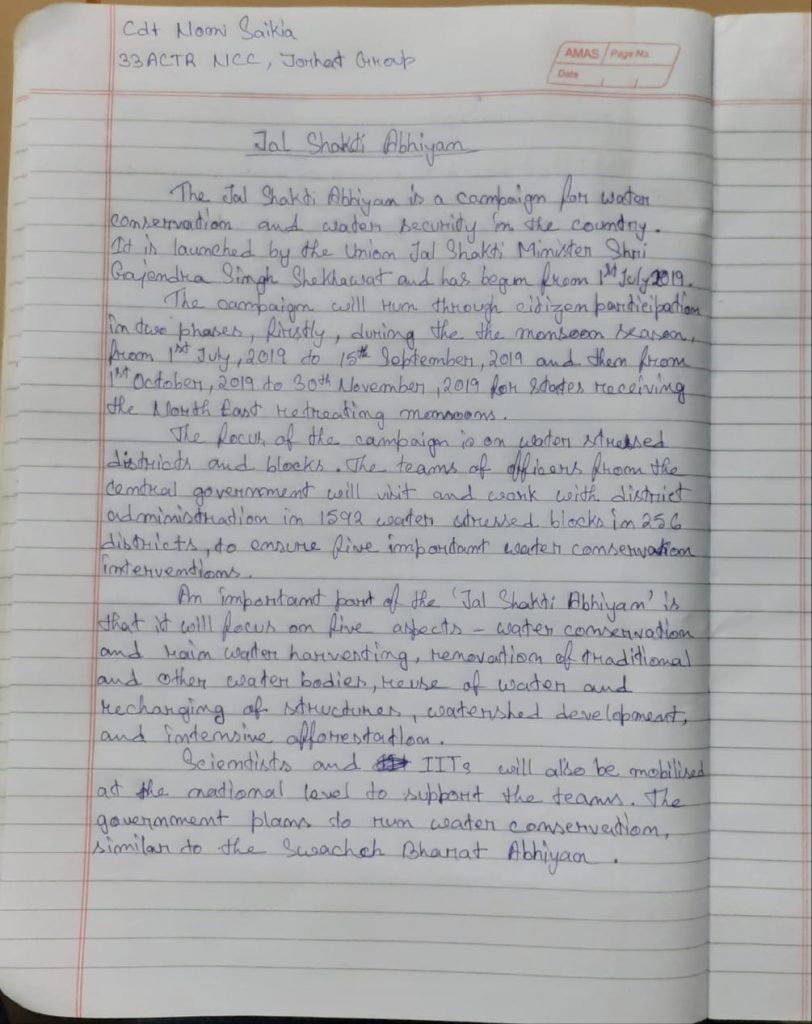 Cdt Nomi Saikia
33ACTR NCC, Jorhat Group
AMAS Page No.
Date
Jal Shakti Abhiyan
The Jal Shakti Abhiyan is a campaign for water
conservation and water security in the country.
It is launched by the Union Jal Shakti Minister Shri
Gajendra Singh Shekhawat and has began from 1st July 2019.
The campaign will run through citizen participation
in two phases, firstly, during the the monsoon season,
from 1st July, 2019 to 15th September, 2019 and then from
1st October, 2019 to 30th November, 2019 for states receiving
the North East retreating monsoons.
The focus of the campaign is on water stressed
districts and blocks. The teams of officers from the
central government will visit and work with district
administration in 1592 water stressed blocks in 256
districts, to ensure five important water conservation
interventions.
An important part of the 'Jal Shakti Abhiyan' is
that it will focus on five aspects - water conservation
and rain water harvesting, renovation of traditional
and other water bodies, reuse of water and
recharging of structures, watershed development,
and intensive afforestation.
Scientists and IITs will also be mobilised
at the national level to support the teams. The
government plans to run water conservation,
similar to the Swachch Bharat Abhiyan.